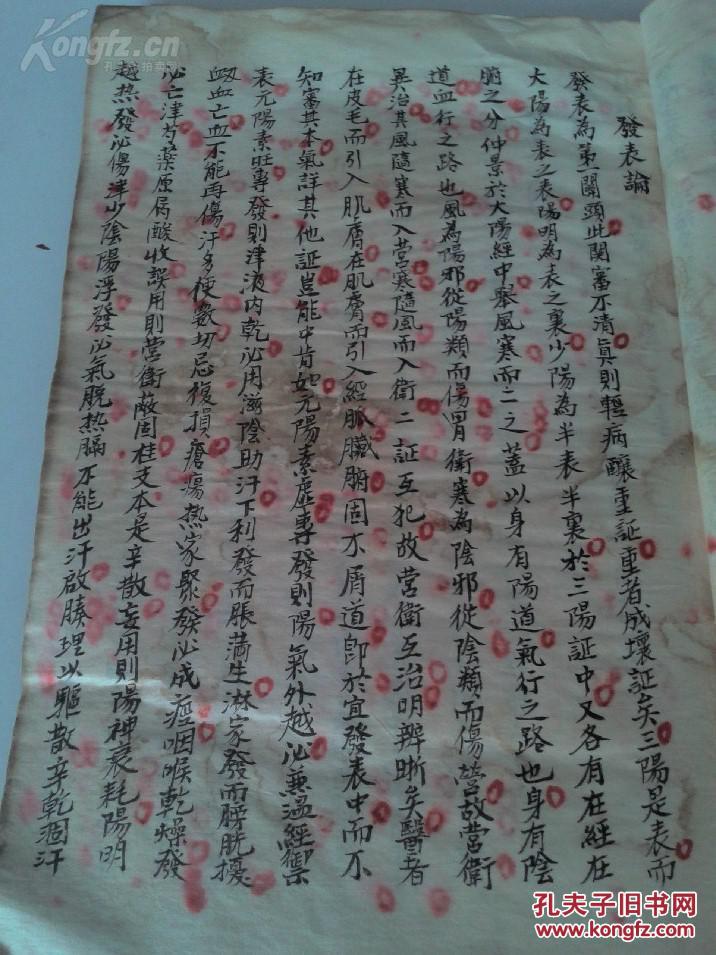 發表論
發表為第一關頭此関審不清真則輕病釀重証重者成壞証矣三陽是表而
大陽為表之表陽明為表之裏少陽為半表半裏於三陽証中又各有在經在
腑之分仲景於大陽經中舉風寒而二之蓋以身有陽道氣行之路也身有陰
道血行之路也風為陽邪從陽類而傷胃衛寒為陰邪從陰類而傷營故營衛
異治其風隨寒而入營寒隨風而入衛二証互犯故營衛互治明辨晰矣醫者
在皮毛而引入肌膚在肌膚而引入經脈臟腑固不屑道即於宜發表中而不
知審其本氣詳其他証豈能中肯如元陽素虛專發則陽氣外越必兼溫經禦
表元陽素旺專發則津液内乾必用滋陰助汗下利發而脹滿生淋家發而膀胱擾
衂血亡血不能再傷汗多便數切忌復損瘡瘍熱家聚發必成痙咽喉乾燥發
必亡津芍藥原屬酸收誤用則營衛蔽固桂支本是辛散妄用則陽神衰耗陽明
越热發必傷津少陰陽浮發必氣脫热膈不能出汗啟腠理以驅散辛乾涸汗
Kongfz.cn
孔夫子拍卖网
孔夫子旧书网
www.kongfz.com